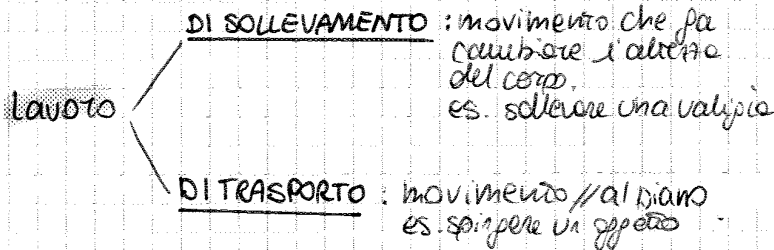 DI SOLLEVAMENTO : movimento che fa
cambiare l'altezza
del corpo.
es. sollevare una valigia
lavoro
DI TRASPORTO : movimento // al piano
es. spingere un oggetto